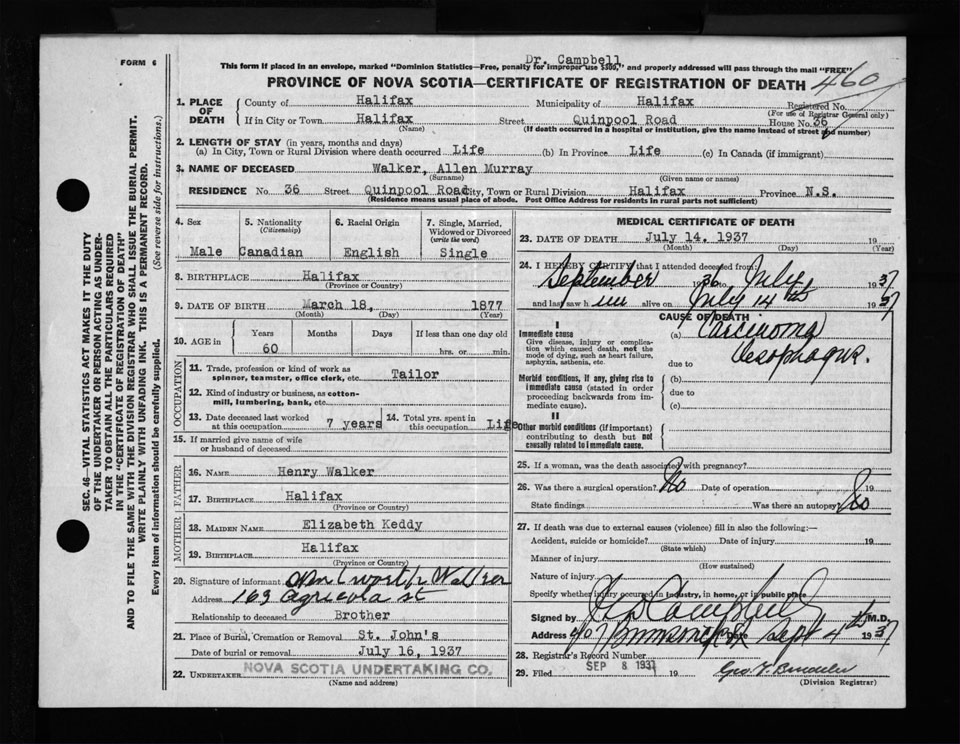 FORM 6
Dr. Campbell
This form if placed in an envelope, marked "Dominion Statistics—Free, penalty for improper use $300," and properly addressed will pass through the mail "FREE"
PROVINCE OF NOVA SCOTIA—CERTIFICATE OF REGISTRATION OF DEATH 460
1. PLACE OF DEATH County of Halifax Municipality of Halifax Registered No.
(For use of Registrar General only)
If in City or Town Halifax Street Quinpool Road House No. 36
(Name) (If death occurred in a hospital or institution, give the name instead of street and number)
2. LENGTH OF STAY (in years, months and days)
(a) In City, Town or Rural Division where death occurred Life (b) In Province Life (c) In Canada (if immigrant)
3. NAME OF DECEASED Walker, Allen Murray
(Surname) (Given name or names)
RESIDENCE No. 36 Street Quinpool Road City, Town or Rural Division Halifax Province N.S.
(Residence means usual place of abode. Post Office Address for residents in rural parts not sufficient)
4. Sex 5. Nationality (Citizenship) 6. Racial Origin 7. Single, Married, Widowed or Divorced (write the word)
Male Canadian English Single
8. BIRTHPLACE Halifax
(Province or Country)
9. DATE OF BIRTH March 18, 1877
(Month) (Day) (Year)
10. AGE in Years Months Days If less than one day old
60 hrs. or min.
OCCUPATION
11. Trade, profession or kind of work as spinner, teamster, office clerk, etc. Tailor
12. Kind of industry or business, as cotton-mill, lumbering, bank, etc.
13. Date deceased last worked at this occupation 7 years 14. Total yrs. spent in this occupation Life
15. If married give name of wife or husband of deceased
FATHER
16. NAME Henry Walker
17. BIRTHPLACE Halifax
(Province or Country)
MOTHER
18. MAIDEN NAME Elizabeth Keddy
19. BIRTHPLACE Halifax
(Province or Country)
20. Signature of informant Walker
Address 169 Agricola st
Relationship to deceased Brother
21. Place of Burial, Cremation or Removal St. John's
Date of burial or removal July 16, 1937
22. UNDERTAKER NOVA SCOTIA UNDERTAKING CO.
(Name and address)
MEDICAL CERTIFICATE OF DEATH
23. DATE OF DEATH July 14, 1937 19
(Month) (Day)
24. I HEREBY CERTIFY that I attended deceased from
September 1936 to July 1937
and last saw h im alive on July 14th 1937
CAUSE OF DEATH
I
Immediate cause (a) Carcinoma
Give disease, injury or complication which caused death, not the mode of dying, such as heart failure, asphyxia, asthenia, etc.
Oesophagus.
due to
Morbid conditions, if any, giving rise to immediate cause (stated in order proceeding backwards from immediate cause).
(b)
due to
(c)
II
Other morbid conditions (if important) contributing to death but not causally related to immediate cause.
25. If a woman, was the death associated with pregnancy?
26. Was there a surgical operation? No Date of operation 19
State findings Was there an autopsy? No
27. If death was due to external causes (violence) fill in also the following:—
Accident, suicide or homicide? Date of injury 19
(State which)
Manner of injury
(How sustained)
Nature of injury
Specify whether injury occurred in industry, in home, or in public place
Signed by Campbell M.D.
Address Date Sept 4th 1937
28. Registrar's Record Number
29. Filed SEP 8 1937 19 Geo
(Division Registrar)
SEC. 46—VITAL STATISTICS ACT MAKES IT THE DUTY
OF THE UNDERTAKER OR PERSON ACTING AS UNDER-
TAKER TO OBTAIN ALL THE PARTICULARS REQUIRED
IN THE "CERTIFICATE OF REGISTRATION OF DEATH"
AND TO FILE THE SAME WITH THE DIVISION REGISTRAR WHO SHALL ISSUE THE BURIAL PERMIT.
WRITE PLAINLY WITH UNFADING INK. THIS IS A PERMANENT RECORD.
Every item of information should be carefully supplied. (See reverse side for instructions.)